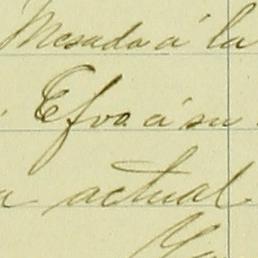 Mesada á la
Efva á su
a actual